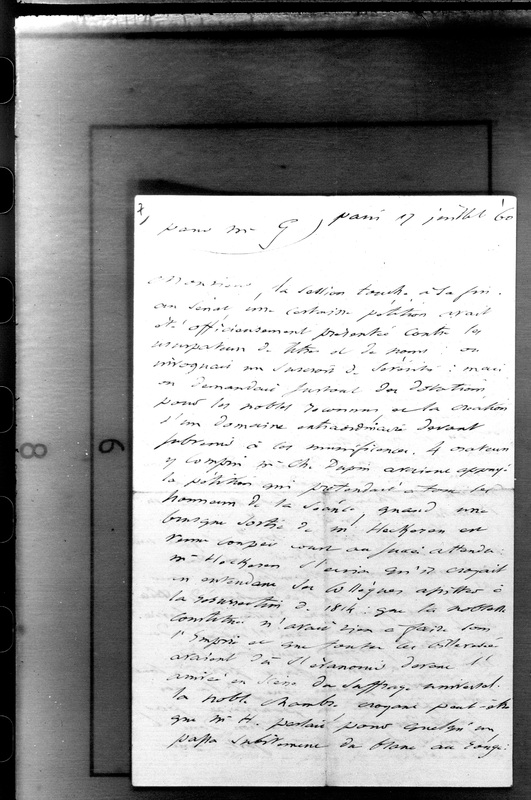 pour Mr G) paris 17 juillet 60
Monsieur, la session touche à sa fin.
au Sénat une certaine pétition avait
été officieusement présentée contre les
usurpateurs de titre et de noms : on
invoquait un surcroit de sévérité : mais
on demandait surtout des dotations,
pour les nobles reconnus, et la création
d'un domaine extraordinaire devant
subvenir à ces munificences. 4 orateurs
y compris Mr Ch. Dupin avaient appuyé
la pétition qui prétendait à tous les
honneurs de la séance, quand une
brusque sortie de Mr Heckeren est
venue couper court au succès attendu.
Mr Heckeren s'écria qu'il croyait
en entendant ses collègues assister à
la résurrection de 1814 : que la noblesse
constituée n'avait rien à faire sous
l'Empire et que toutes ces
avaient dû s'évanouir devant l'
en scène du suffrage universel.
la noble chambre croyant peut-être
que Mr H. parlait pour quelqu'un,
passa subitement du blanc au rouge :
8
6